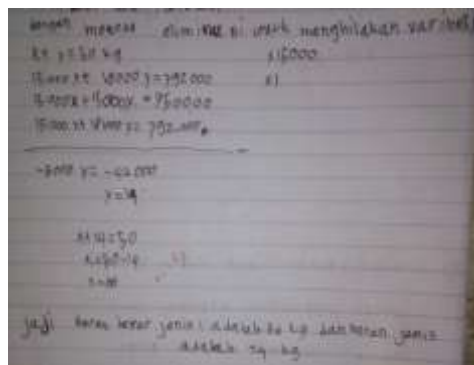 dengan metode eliminasi untuk menghilangkan variabel
x + y = 50 kg x15000
15.000x + 18000 y = 792.000 x1
15.000x + 15000x = 750000
15.000x + 18000 y = 792.000
-3000 y = -42000
y = 14
x + 14 = 50
x = 50 - 14
jadi beras jenis 1 adalah kg dan beras jenis
adalah 14 kg